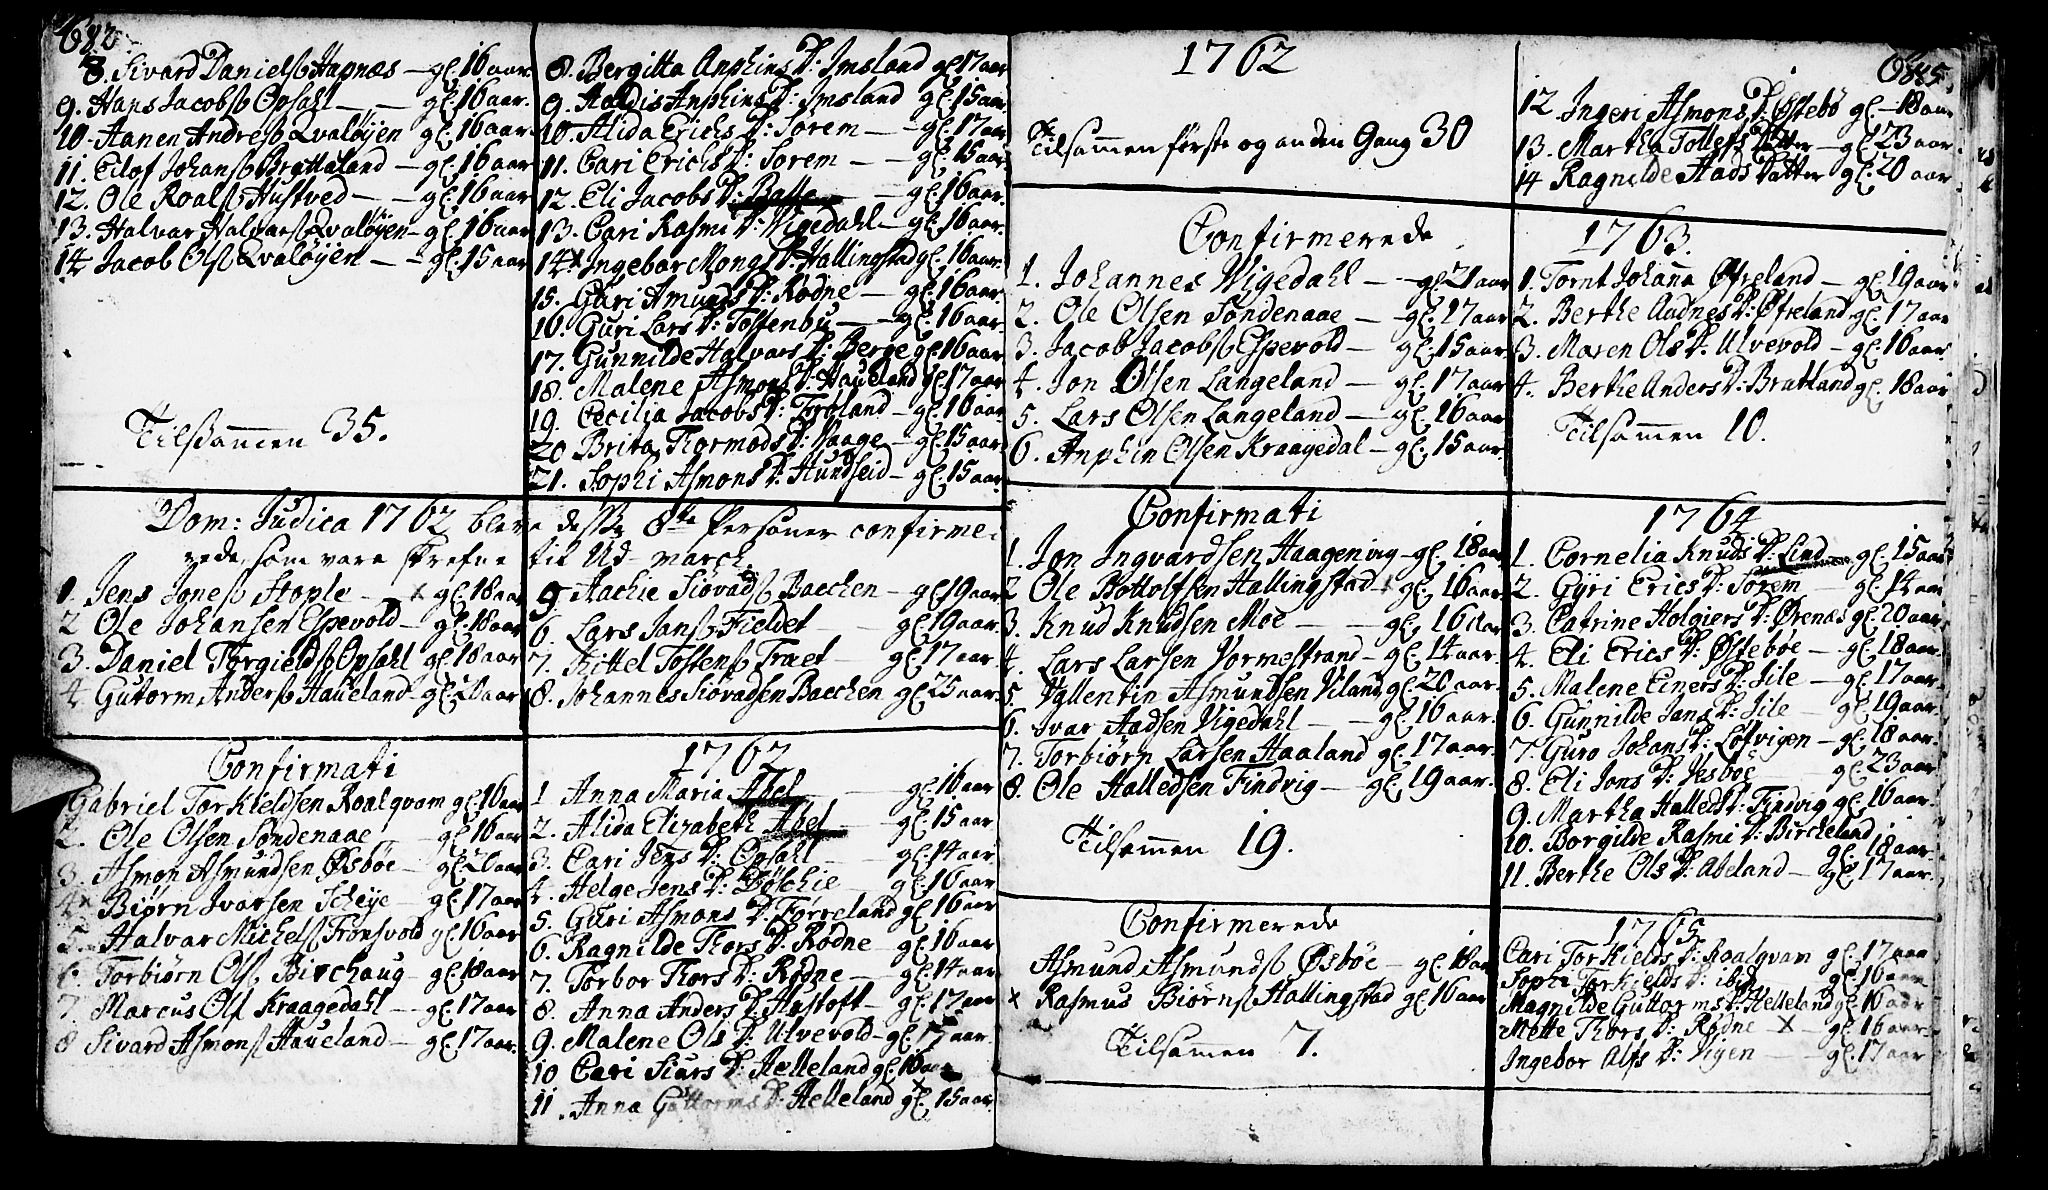 682
8. Sivard Danielsß Hapnæs — gl. 16 aar.
9. Hans Jacobsß Opsahl — — gl. 16 aar.
10. Aanen Andresß Qvaløÿen gl. 16 aar.
11. Elof Johansß Brattaland — gl. 16 aar
12. Ole Roalsß Hustved — — gl. 16 aar
13. Halvar Halvarsß Qvaløÿen — gl. 16 aar
14 Jacob Olsß Qvaløÿen — — gl. 15 aar
Tilsammen 35.
8. Bergitta Anphins D: Imsland gl 17 aar
9. Aaldis Anphins D: Imsland gl. 15 aar.
10. Alida Erichs D: Sørem — — gl. 17 aar
11. Cari Erichs D: Sørem — — gl. 15 aar
12. Eli Jacobs D: — gl. 16 aar.
13. Cari Rasmi D: Wigedahl — gl. 16 aar.
14 x Ingebor Mons D: Hallingstad gl. 16 aar.
15. Guri Amunds D: Rødne — gl. 16 aar.
16. Guri Lars D: Tostenbu — — gl. 16 aar.
17. Gunnilde Halvars D: Berge gl. 16 aar
18. Malene Asmons D: Haueland gl. 17 aar
19. Cecilia Jacobs D: — gl. 16 aar
20 Brita Thormods D: Vaage — gl. 15 aar
21. Sophi Asmons D: Hundseid — gl. 15 aar
Dom: Judica 1762 bleve disse 8te Personer confirme-
rede, som vare skrefne til Ud-march.
1. Jens Jonesß Stople — x gl. 18 aar
2 Ole Johansen Espevold — gl. 18 aar
3. Daniel Torgieldsß Opsahl gl. 18 aar
4. Gutorm Andersß Haueland — gl. 20 aar
5 Aachie Siovadsß Baechen — gl 19 aar
6. Lars Jansß Fieldet — gl. 19 aar.
7. Kittel Tostensß Traet — gl. 17 aar
8. Johannes Siovadsen Baechen gl. 25 aar.
Confirmati 1762
Gabriel Torkieldsen Roalqvam gl. 16 aar
2. Ole Olsen Søndenaae — gl. 16 aar
3. Asmon Asmundsen Øsbøe — gl. 20 aar
4 x Biørn Ivarsen Scheÿe — gl. 17 aar
5. Halvar Michelsß Tronsvold gl. 16 aar
6. Torbiørn Ols. Birchaug — gl. 18 aar
7. Marcus Ols Kraagedahl — gl. 17 aar
8 Sivard Asmonsß Haueland — gl. 17 aar.
1 Anna Maria Abel — gl. 16 aar
2. Alida Elizabeth Abel — gl. 15 aar
3. Cari Jens D: Opsahl — gl. 14 aar
4. Helge Jens D: Døschie — gl. 16 aar
5. Guri Asmons D: Førreland gl 16 aar
6. Ragnilde Thors D: Rødne — gl. 16 aar
7. Torbor Thors D: Rødne — gl. 14 aar
8. Anna Anders D: Hastoft — gl. 17 aar
9. Malene Ols D: Ulvevold — gl. 17 aar.
10 Cari Siurs D: Helleland gl. 16 aar
11. Anna Guttorms D: Helleland gl. 15 aar.
685.
1762
Tilsammen første og anden Gang 30
12. Ingeri Asmons D: Østebö gl — 18 aar
13. Martha Tollefs Datter — gl. 23 aar
14 Ragnilde Aads Datter gl. 20 aar
Confirmerede 1763.
1. Johannes Wigedahl — — gl. 21 aar
2. Ole Olsen Søndenaae — — gl. 17 aar
3. Jacob Jacobsß Espevold — gl. 15 aar
4. Jon Olsen Langeland — gl. 17 aar
5. Lars Olsen Langeland — gl. 16 aar
6. Anphin Olsen Kraagedal — gl. 15 aar.
1. Tornt Johanna Øfreland — gl. 19 aar
2. Berthe Audnes D: Øfreland gl. 17 aar
3. Maren Ols D: Ulvevold — gl. 16 aar.
4. Berthe Anders D: Bratland gl. 18 aar
Tilsammen 10.
Confirmati 1764
1. Jon Ingvardsen Haagenvig — gl. 18 aar
2 Ole Bottolfsen Hallingstad gl. 16 aar.
3. Knud Knudsen Moe — — gl. 16 aar
4. Lars Larsen Vormestrand — gl. 14 aar.
5 Vallentin Asmundsen Viland gl. 20 aar.
6. Ivar Aadsen Vigedahl — — gl. 16 aar.
7. Torbiørn Larsen Haaland gl. 17 aar.
8. Ole Halledsen Findvig — gl. 19 aar.
Tilsammen 19.
1. Cornelia Knuds D: Lind gl. 15 aar
2. Gÿri Erics D: Sørem — gl. 14 aar
3. Catrine Holgiers D: Ørenæs gl. 20 aar
4. Eli Erics D: Østebøe — gl. 18 aar.
5. Malene Einers D: Sile — gl. 17 aar
6. Gunnilde Jans D: Sile — gl. 19 aar.
7. Guro Johans D: Løfvigen — gl. 18 aar.
8. Eli Jons D: Jesböe — gl. 23 aar
9. Martha Halleds D: Findvig gl. 16 aar.
10. Borgilde Rasmi D: Bircheland gl. 18 aar.
11. Berthe Ols D: Abeland — gl. 17 aar.
Confirmerede 1765
Asmund Asmundsß Øsbøe — gl. 18 aar
x Rasmus Biørnsß Hallingstad gl. 16 aar
Tilsammen 7.
Cari Torkields D: Roalqvam gl. 17 aar
Sophi Torkields D: ibid. gl. 16 aar
Magnilde Guttorms D: Helleland gl. 16 aar
Mette Thors D: Rødne x — gl. 16 aar
Ingebor Alfs D: Vigen — gl. 17 aar